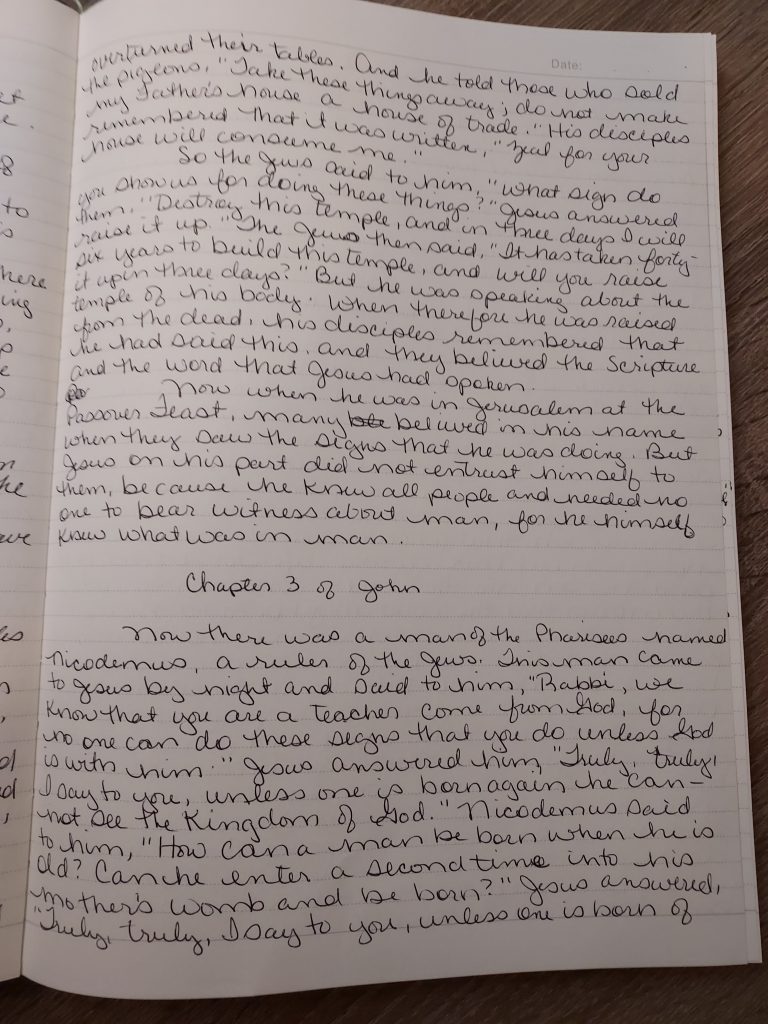 et
e.
8
to
is
here
ing
o,
p
e
n
he
ave
les
n
,
d
ed
,
Date:
overturned their tables. And he told those who sold
the pigeons, "Take these things away; do not make
my Father's house a house of trade." His disciples
remembered that it was written, "Zeal for your
house will consume me."
So the Jews said to him, "What sign do
you show us for doing these things?" Jesus answered
them, "Destroy this temple, and in three days I will
raise it up." The Jews then said, "It has taken forty-
six years to build this temple, and will you raise
it up in three days?" But he was speaking about the
temple of his body. When therefore he was raised
from the dead, his disciples remembered that
he had said this, and they belived the Scripture
and the word that Jesus had spoken.
Now when he was in Jerusalem at the
Passover Feast, many belived in his name
when they saw the signs that he was doing. But
Jesus on his part did not entrust himself to
them, because he knew all people and needed no
one to bear witness about man, for he himself
knew what was in man.
Chapter 3 of John
Now there was a man of the Pharisees named
Nicodemus, a ruler of the Jews. This man came
to Jesus by night and said to him, "Rabbi, we
know that you are a teacher come from God, for
no one can do these signs that you do unless God
is with him." Jesus answered him, "Truly, truly,
I say to you, unless one is born again he can-
not see the Kingdom of God." Nicodemus said
to him, "How can a man be born when he is
old? Can he enter a second time into his
mother's womb and be born?" Jesus answered,
"Truly, truly, I say to you, unless one is born of